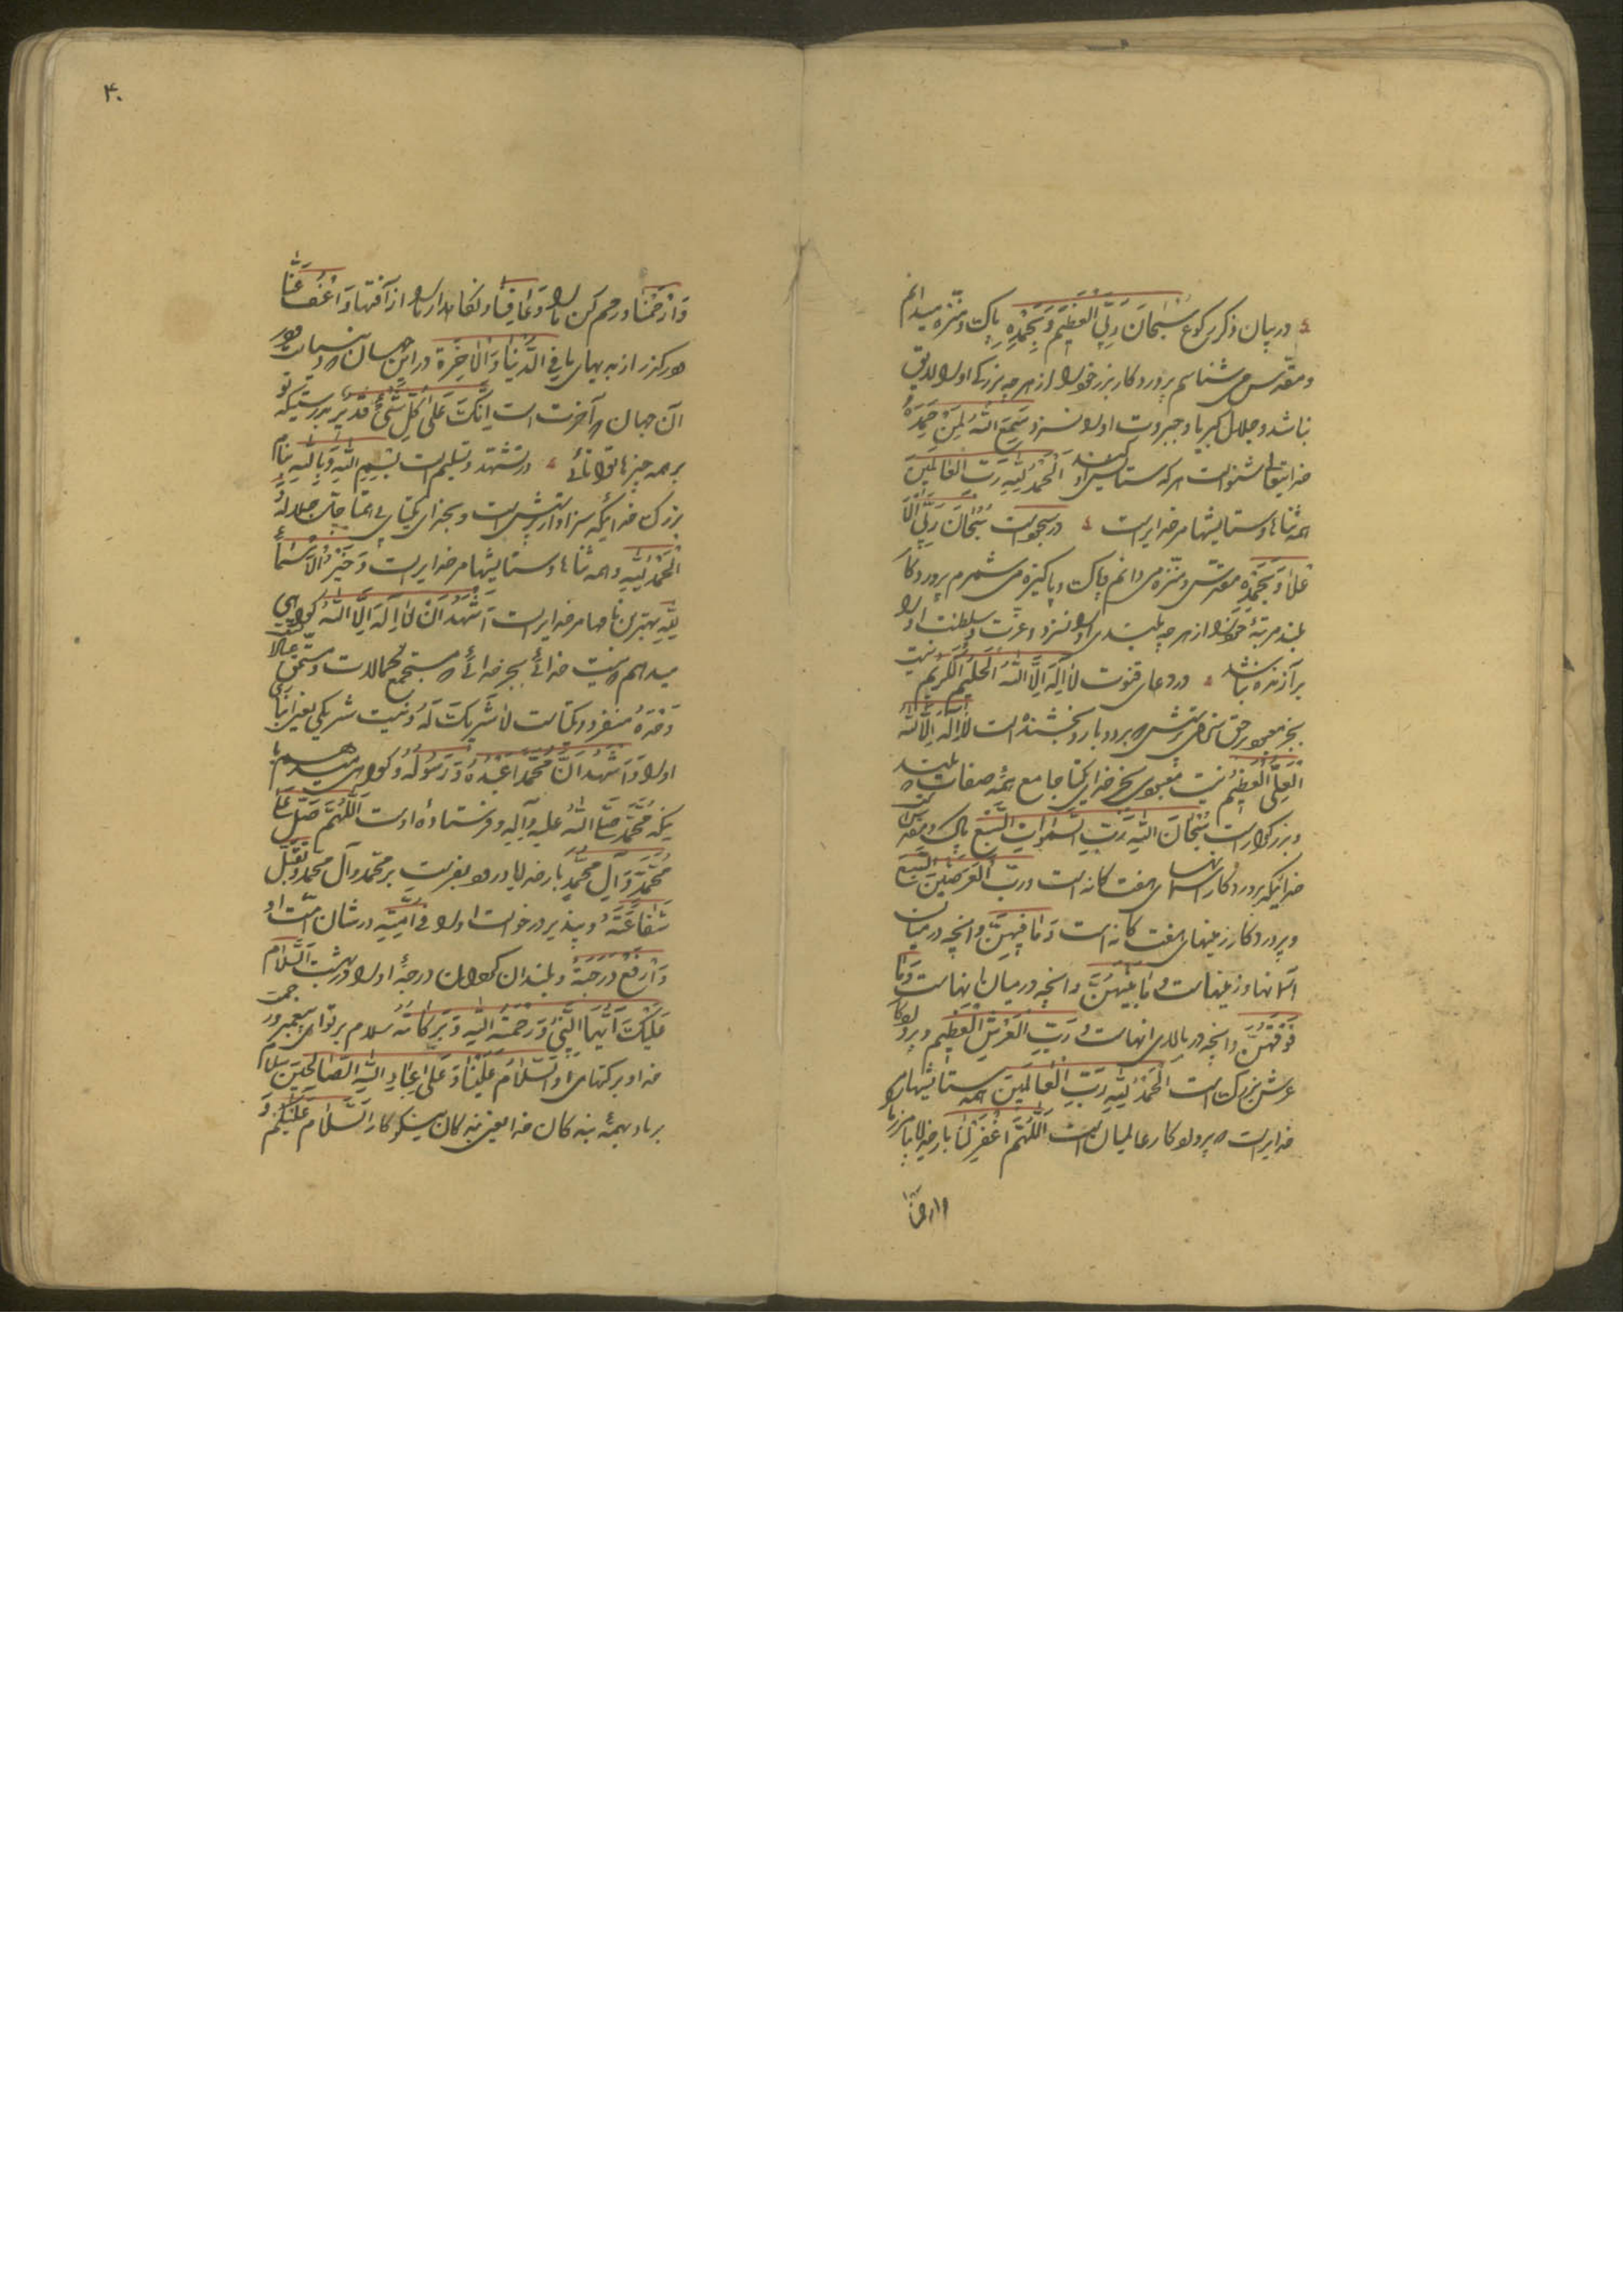 در بیان ذکر رکوع سُبْحانَ رَبِّیَ الْعَظیمِ وَبِحَمْدِهِ پاک و منزه میدانم
و مقدس می شناسم پروردکار بزرک خود را از هر چه بزرکی او را لایق
نباشد و جلال کبریا و جبروت او را نسزد سَمِعَ اللّهُ لِمَنْ حَمِدَهُ
خدایتعالی شنواست هر که ستایش او کند اَلْحَمْدُ لِلّهِ رَبِّ الْعالَمینَ
همه ثناها و ستایشها مر خدایراست در سجود است سُبْحانَ رَبِّیَ الْاَ
عْلی وَبِحَمْدِهِ مقدس و منزه می دانم و پاک و پاکیزه می شمرم پروردکا
بلند مرتبهٔ خود را از هر چه بلندی او را نسزد و عزت و سلطنت او را
برازنده نباشد در دعای قنوت لا اِلهَ اِلَّا اللّهُ الْحَلیمُ الْکَریمُ نیست
بجز معبود بر حق سزای پرستش که بردبار و بخشنده است لا اِلهَ اِلَّا اللّهُ
الْعَلِیُّ الْعَظیمُ نیست معبودی بجز خدای یکتا جامع همه صفات که بلند
و بزرکوار است سُبْحانَ اللّهِ رَبِّ السَّمواتِ السَّبْعِ پاک و مقدس
خدائیکه پروردکار آسمانهای هفت کانه است وَرَبِّ الْاَرَضینَ السَّبْعِ
و پروردکار زمینهای هفت کانه است وَما فیهِنَّ و آنچه در میان
آسمانها و زمینهاست وَما بَیْنَهُنَّ و آنچه در میان اینهاست وَما
فَوْقَهُنَّ و آنچه در بالای آنهاست وَرَبِّ الْعَرْشِ الْعَظیمِ و پروردکا
عرش بزرک است اَلْحَمْدُ لِلّهِ رَبِّ الْعالَمینَ همه ستایشها مر
خدایراست که پروردکار عالمیان است اَللّهُمَّ اغْفِرْ لَنا بار خدایا بیامرز ما را
وارحمنا
۴۰
وَارْحَمْنا و رحم کن ما را وَعافِنا و نکاهدار ما را از آفتها وَاعْفُ عَنّا
و در کذر از بدیهای ما فِی الدُّنْیا وَالْاخِرَةِ در این جهان که دنیاست و در
آن جهان که آخرت است اِنَّکَ عَلی کُلِّ شَیْءٍ قَدیرٌ بدرستیکه تو
بر همه چیزها توانائی در تشهد و تسلیم است بِسْمِ اللّهِ وَبِاللّهِ بنام
بزرک خدائیکه سزاوار پرستش است و بجز او یکتای بی همتا جل جلاله
اَلْحَمْدُ لِلّهِ و همه ثناها و ستایشها مر خدایراست وَخَیْرُ الْاَسْماءِ
لِلّهِ بهترین نامها مر خدایراست اَشْهَدُ اَنْ لا اِلهَ اِلَّا اللّهُ کواهی
میدهم که نیست خدائی بجز خدائی که مستجمع کمالات و مستحق
وَحْدَهُ منفرد و یکتاست لا شَریکَ لَهُ و نیست شریکی
او را وَاَشْهَدُ اَنَّ مُحَمَّداً عَبْدُهُ وَرَسُولُهُ و کواهی میدهم با
ینکه محمد صلی اللّه علیه وآله و فرستادهٔ اوست اَللّهُمَّ صَلِّ عَلی
مُحَمَّدٍ وَآلِ مُحَمَّدٍ بار خدایا درود بفرست بر محمد وآل محمد وَتَقَبَّلْ
شَفاعَتَهُ و بپذیر درخواست او را فی اُمَّتِهِ در شان امت او
وَارْفَعْ دَرَجَتَهُ و بلند کردان درجهٔ او را در بهشت اَلسَّلامُ
عَلَیْکَ اَیُّهَا النَّبِیُّ وَرَحْمَةُ اللّهِ وَبَرَکاتُهُ سلام بر تو ای پیغمبر و رحمت
خدا و برکتهای او اَلسَّلامُ عَلَیْنا وَعَلی عِبادِ اللّهِ الصّالِحینَ سلام
بر ما و بهمهٔ بنده کان خدا یعنی بنده کان نیکوکار اَلسَّلامُ عَلَیْکُمْ وَ